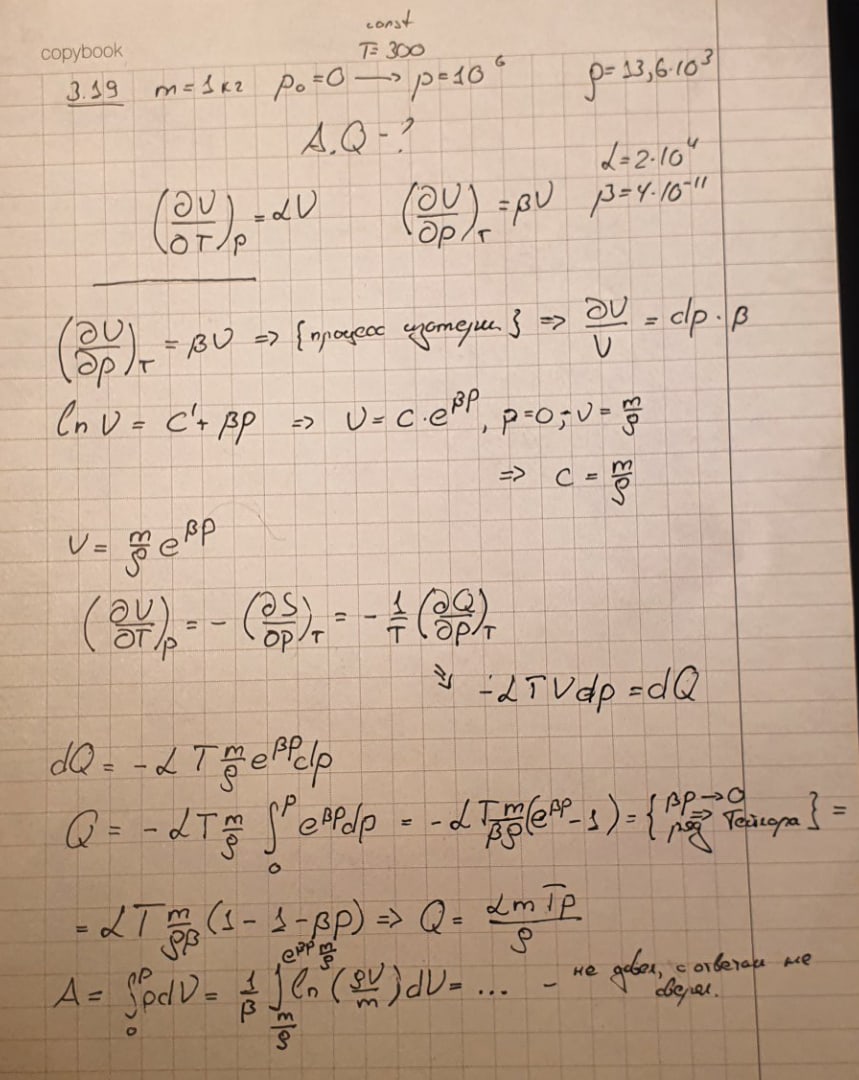 const
copybook T=300
3.19 m=1кг p₀=0 ⟶ p=10⁶ ρ=13,6·10³
A.Q-?
α=2·10⁴
(∂V/∂T)_P = αV (∂V/∂p)_T = βV β=4·10⁻¹¹
(∂V/∂p)_T = βV => {процесс изотерм.} => ∂V/V = dp·β
ln V = C'+ βp => V= C·e^{βp}, p=0;-V= m/ρ
=> C = m/ρ
V= m/ρ e^{βp}
(∂V/∂T)_P = -(∂S/∂p)_T = -1/T (∂Q/∂p)_T
=> -αTVdp = dQ
dQ = -αT m/ρ e^{βp}dp
Q = -αT m/ρ ∫₀^p e^{βp}dp = -α Tm/βρ (e^{βp}-1) = {βp→0 => ряд Тейлора} =
= αT m/ρβ (1-1-βp) => Q = αmTp/ρ
A = ∫₀^p pdV = 1/β ∫_{m/ρ}^{e^{βp} m/ρ} ln(ρV/m)dV = ... - не довел, с ответом не
сверил.